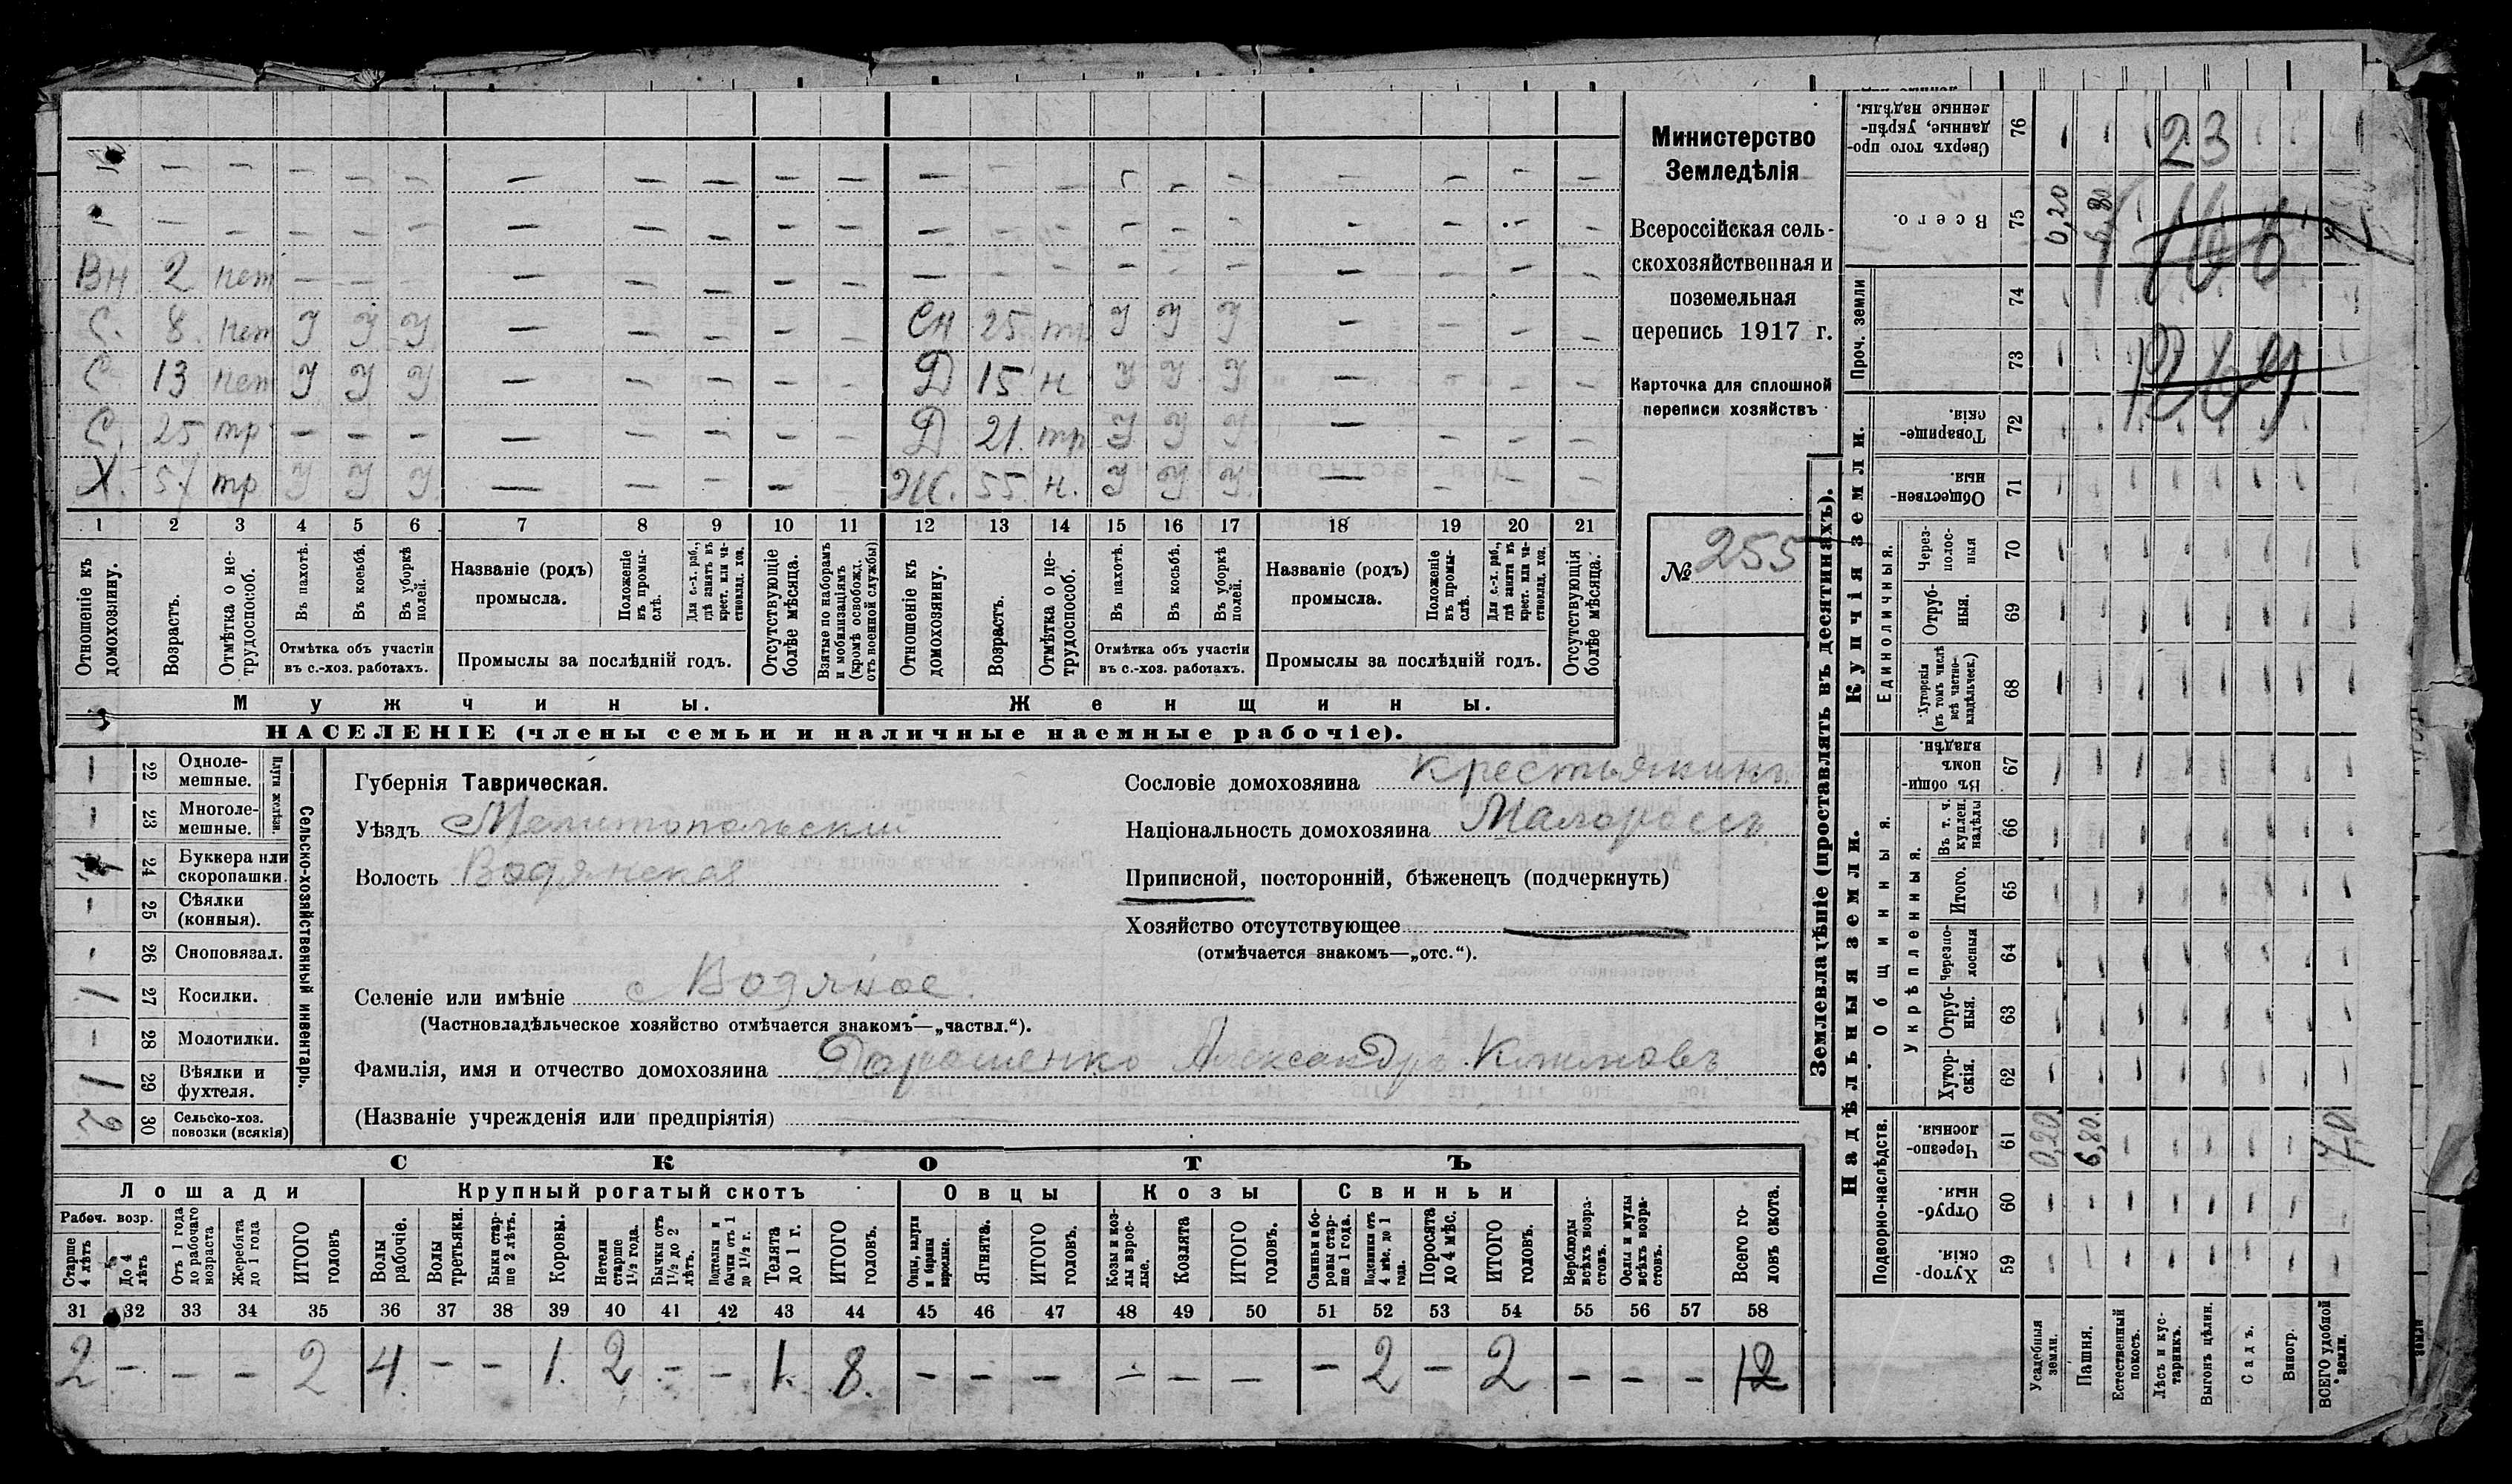 Министерство
Земледѣлія
Всероссійская сель-
скохозяйственная и
поземельная
перепись 1917 г.
Карточка для сплошной
переписи хозяйствъ
№ 255
— — — — — — — — — — — — — — — — — — — —
— — — — — — — — — — — — — — — — — — — — —
Вн 2 нет — — — — — — — — — — — — — — — — — —
С. 8 нет У У У — — — — — Сн 25 тр У У У — — — —
С 13 нет У У У — — — — — Д 15 н У У У — — — —
С. 25 тр — — — — — — — — Д 21. тр У У У — — — —
Х. 57 тр У У У — — — — — Ж. 55 н. У У У — — — —
1 2 3 4 5 6 7 8 9 10 11 12 13 14 15 16 17 18 19 20 21
Отношеніе къ домохозяину.
Возрастъ.
Отмѣтка о не-трудоспособ.
Въ пахотѣ.
Въ косьбѣ.
Въ уборкѣ полей.
Отмѣтка объ участіи
въ с.-хоз. работахъ.
Названіе (родъ)
промысла.
Положеніе въ промы-слѣ.
Для с.-х. раб., гдѣ занятъ въ крест. или ча-стновлад. хоз.
Промыслы за послѣдній годъ.
Отсутствующіе болѣе мѣсяца.
Взятые по наборамъ и мобилизаціямъ (кромѣ освобожд. отъ военной службы)
Отношеніе къ домохозяину.
Возрастъ.
Отмѣтка о не-трудоспособ.
Въ пахотѣ.
Въ косьбѣ.
Въ уборкѣ полей.
Отмѣтка объ участіи
въ с.-хоз. работахъ.
Названіе (родъ)
промысла.
Положеніе въ промы-слѣ.
Для с.-х. раб., гдѣ занята въ крест. или ча-стновлад. хоз.
Промыслы за послѣдній годъ.
Отсутствующія болѣе мѣсяца.
Мужчины. Женщины.
НАСЕЛЕНІЕ (члены семьи и наличные наемные рабочіе).
Сельско-хозяйственный инвентарь.
Плуги желѣзн.
— 22 Одноле-мешные.
— 23 Многоле-мешные.
24 Буккера или скоропашки.
- 25 Сѣялки (конныя).
- 26 Сноповязал.
1 27 Косилки.
- 28 Молотилки.
1 29 Вѣялки и фухтеля.
2 30 Сельско-хоз. повозки (всякія)
Губернія Таврическая.
Уѣздъ Мелитопольскій
Волость Водянская
Селеніе или имѣніе с Водяное.
(Частновладѣльческое хозяйство отмѣчается знакомъ—„частвл.“).
Фамилія, имя и отчество домохозяина Дорошенко Александръ Климовъ
(Названіе учрежденія или предпріятія)
Сословіе домохозяина крестьянинъ
Національность домохозяина Малороссъ
Приписной, посторонній, бѣженецъ (подчеркнуть)
Хозяйство отсутствующее —
(отмѣчается знакомъ—„отс.“).
СКОТЪ
Лошади Крупный рогатый скотъ Овцы Козы Свиньи
Рабоч. возр.
Старше 4 лѣтъ
До 4 лѣтъ
Отъ 1 года до рабочаго возраста
Жеребята до 1 года
ИТОГО головъ
Волы рабочіе.
Волы третьяки.
Быки стар-ше 2 лѣтъ.
Коровы.
Нетели старше 1½ года.
Бычки отъ 1½ до 2 лѣтъ.
Подтелки и бычки отъ 1 до 1½ г.
Телята до 1 г.
ИТОГО головъ.
Овцы, валухи и бараны взрослые.
Ягнята.
ИТОГО головъ.
Козы и коз-лы взрос-лые.
Козлята
ИТОГО головъ.
Свиньи и бо-ровы стар-ше 1 года.
Подсвинки отъ 4 мѣс. до 1 года.
Поросята до 4 мѣс.
ИТОГО головъ.
Верблюды всѣхъ возра-стовъ.
Ослы и мулы всѣхъ возра-стовъ.
Всего го-ловъ скота.
31 32 33 34 35 36 37 38 39 40 41 42 43 44 45 46 47 48 49 50 51 52 53 54 55 56 57 58
2 - - - 2 4. - - 1. 2 - - 1. 8. - - - - - - - 2 - 2 - - - 12
Землевладѣніе (проставлять въ десятинахъ).
Купчія земли.
Надѣльныя земли.
Сверхъ того про-данные, укрѣп-ленные надѣлы. 76
23
Всего. 75 0,20 6,80
Проч. земли 74
73
Товарище-скія. 72
Обществен-ныя. 71
Единоличныя.
Через-полос-ныя 70
Отруб-ныя. 69
Хуторскія (въ томъ числѣ всѣ частно-владѣльческ.) 68
Общинныя.
Въ общи-номъ владѣн. 67
Укрѣпленныя.
Въ т. ч. куплен. надѣлы 66
Итого. 65
Черезпо-лосныя 64
Отруб-ныя. 63
Хутор-скія. 62
Подворно-наслѣдств.
Черезпо-лосныя. 61 0,20 6,80. 7,0
Отруб-ныя. 60
Хутор-скія. 59
Усадебныя земли.
Пашня.
Естественный покосъ.
Лѣсъ и кус-тарникъ.
Выгонъ цѣлин.
Садъ.
Виногр.
ВСЕГО удобной земли.